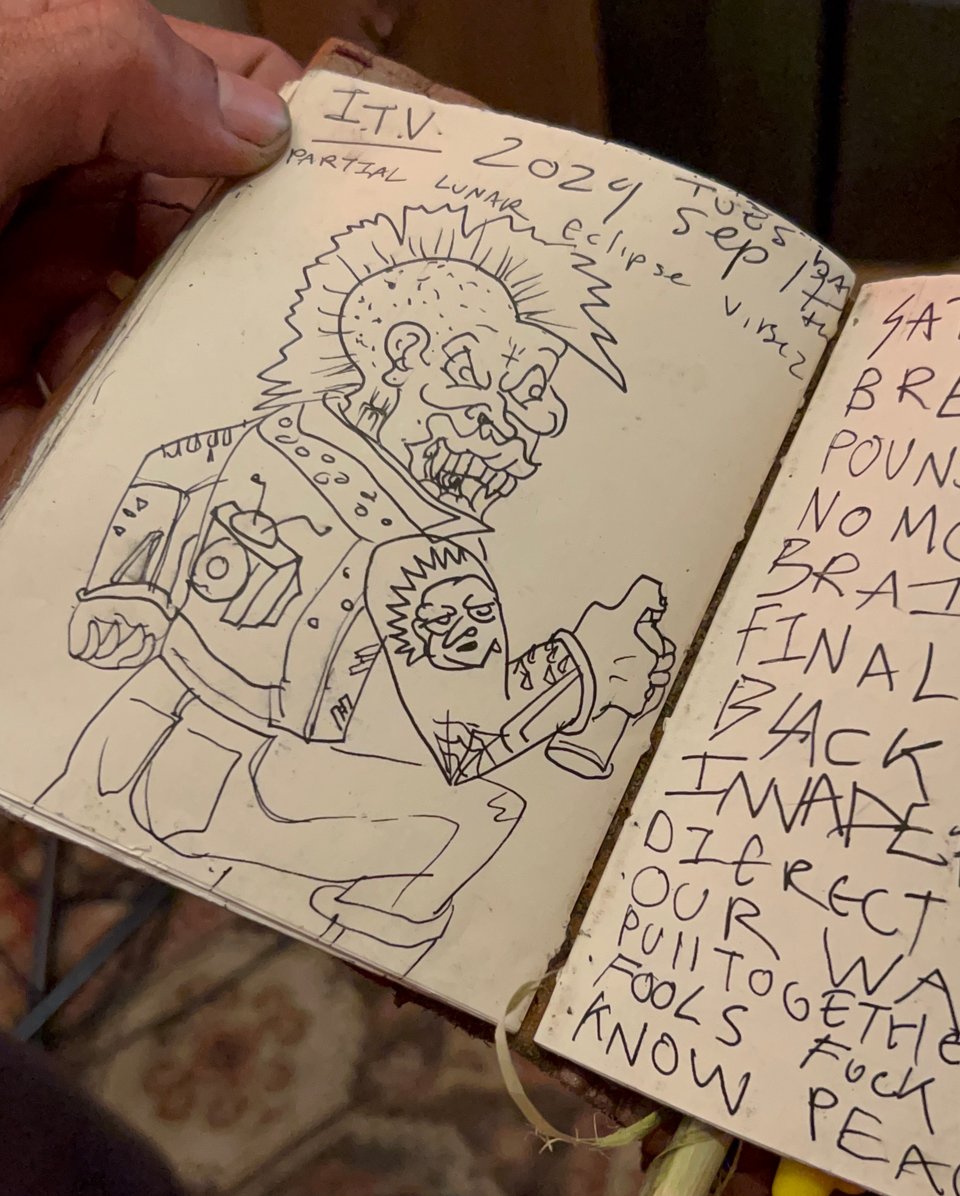 I.T.V. 2024 TUES
Sep 17th
PARTIAL LUNAR Eclipse
SAT
BRE
POUNS
NO MO
BRAI
FINAL
BLACK
INVADE
DIERECT
OUR WA
PUll TOGETHE
FOOLS FUCK
KNOW PEAC